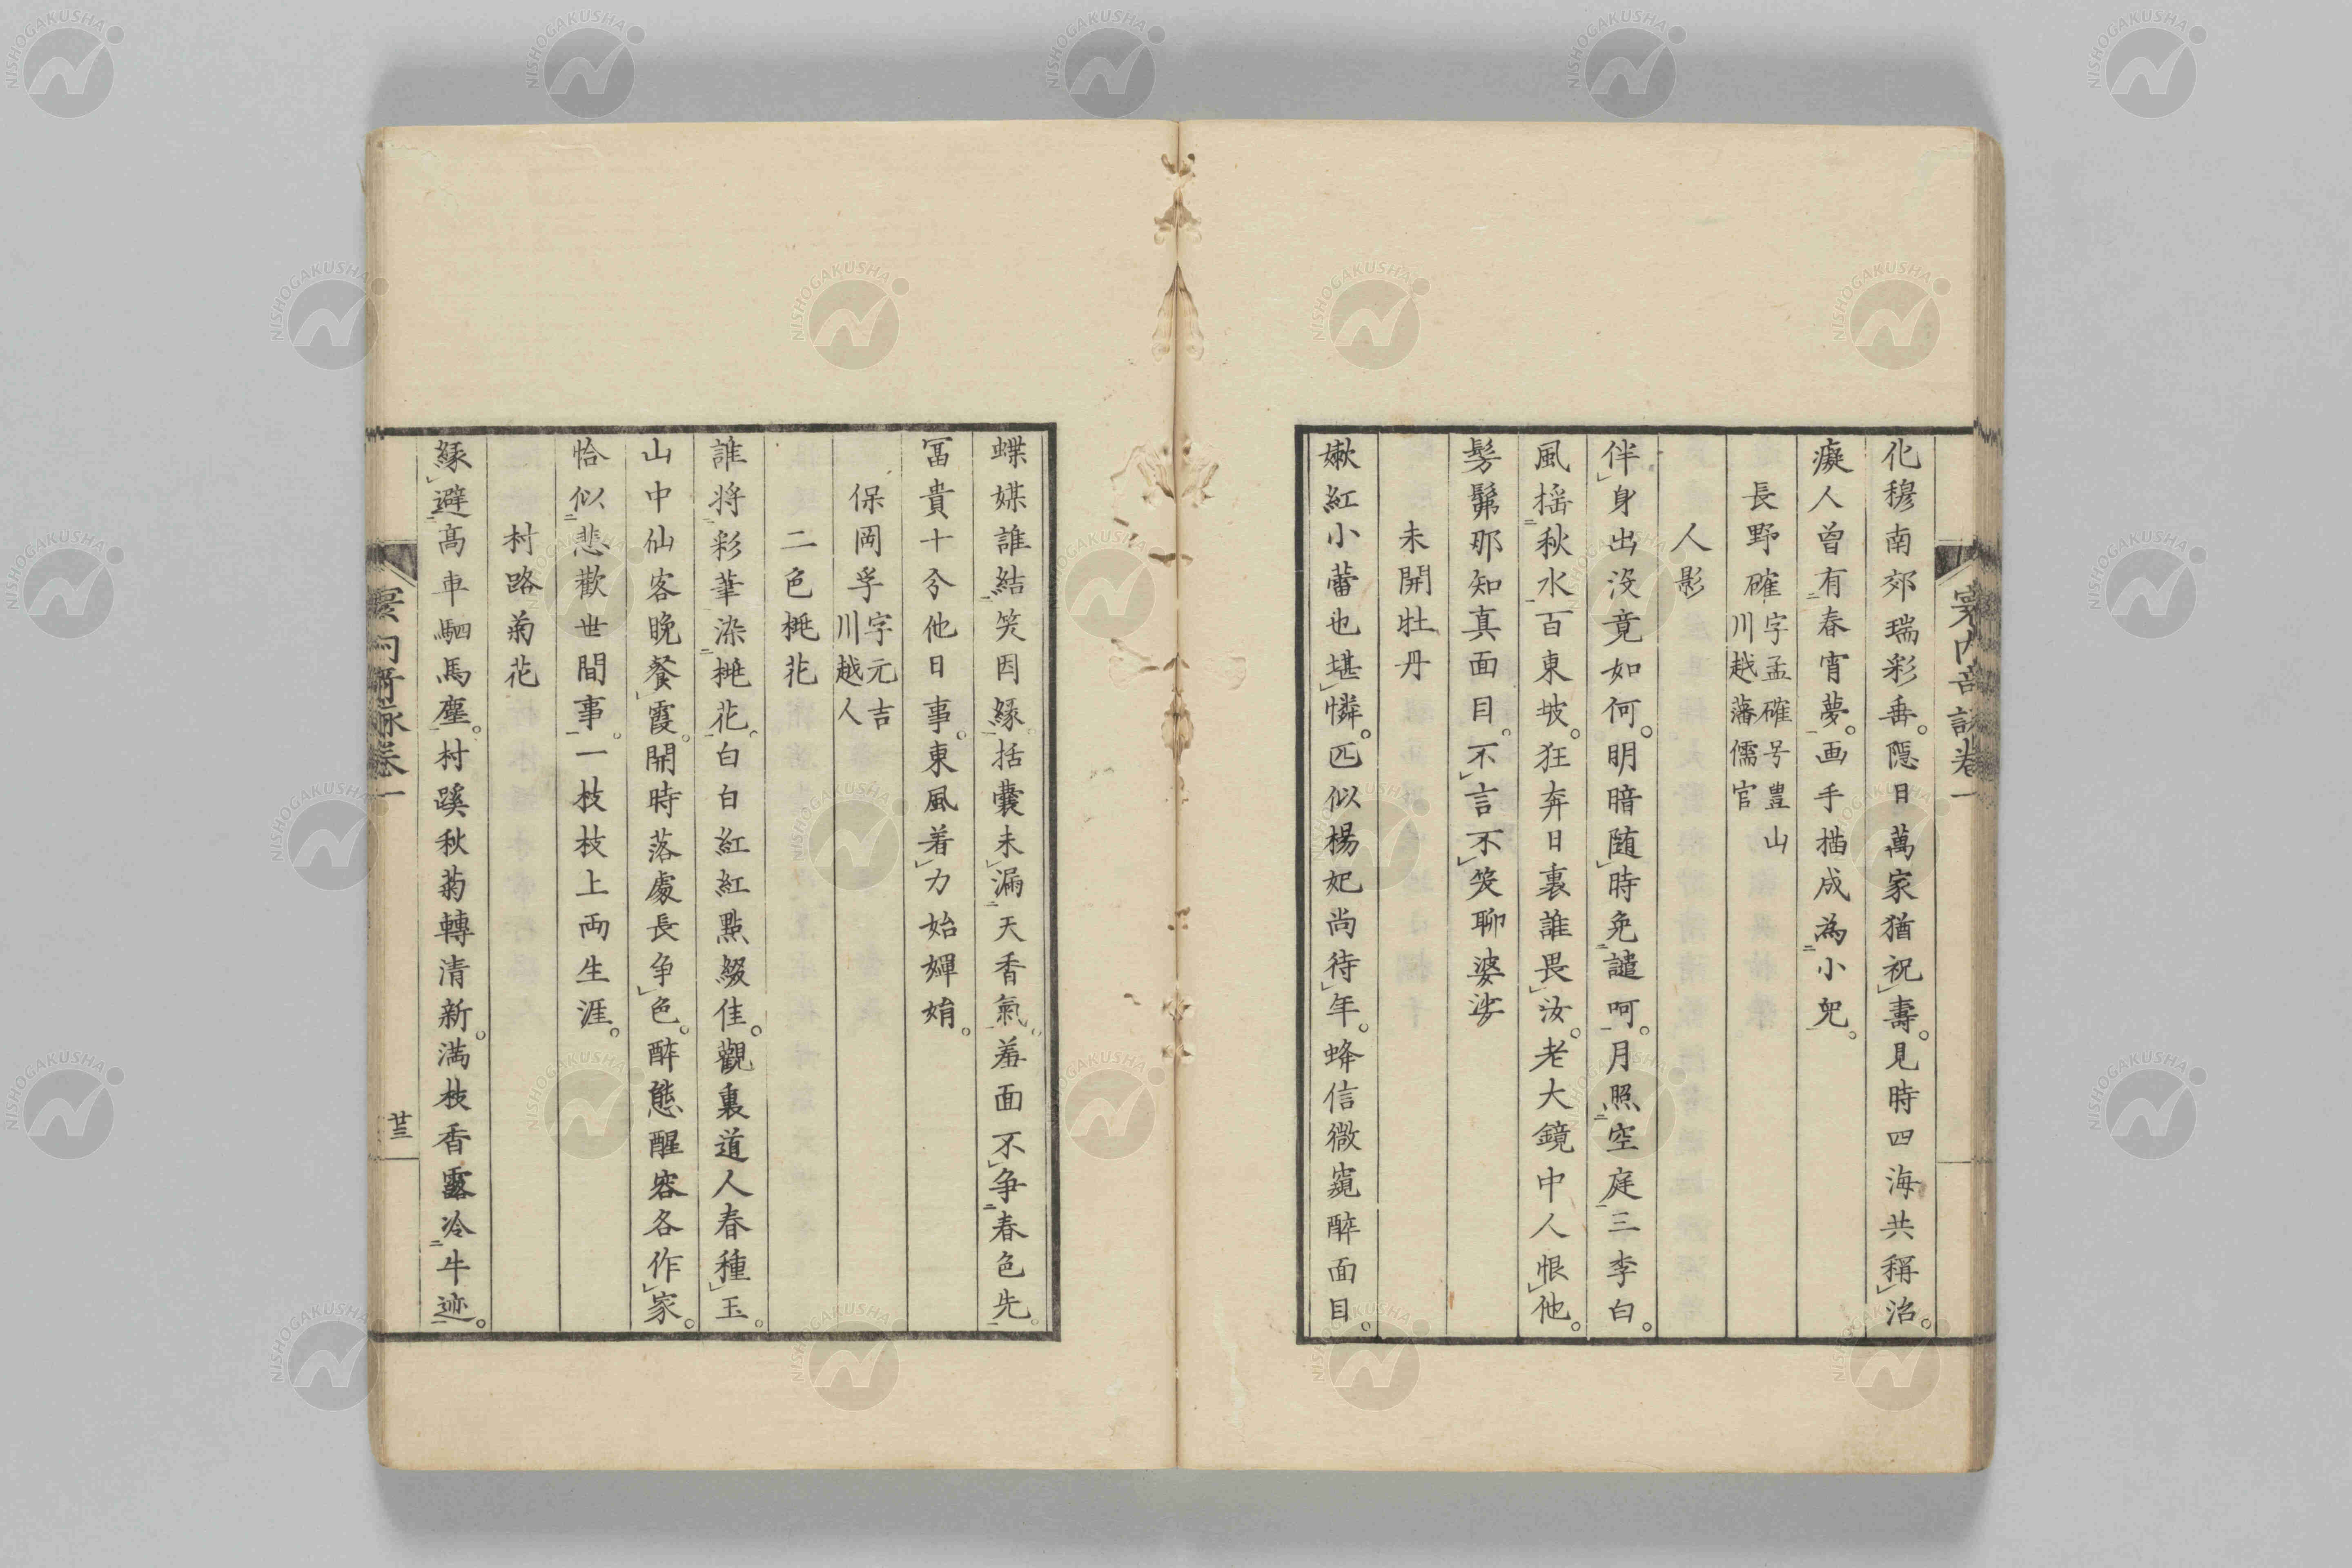 化穆南郊瑞彩垂。隠日萬家猶祝壽。見時四海共稱治。
癡人曾有春宵夢。画手描成為小兒。
長野確 字孟確号豊山
川越藩儒官
人影
伴身出没竟如何。明暗随時免譴呵。月照空庭三李白。
風揺秋水百東坡。狂奔日裏誰畏汝。老大鏡中人恨他。
髣髴那知真面目。不言不笑聊婆娑
未開牡丹
嫩紅小蕾也堪憐。匹似楊妃尚待年。蜂信微窺醉面目。
蝶媒誰結笑因縁。括囊未漏天香氣。羞面不争春色先。
冨貴十分他日事。東風着力始嬋娟。
保岡孚 字元吉
川越人
二色桃花
誰將彩筆染桃花。白白紅紅點綴佳。觀裏道人春種玉。
山中仙客晩餐霞。開時落處長争色。醉態醒容各作家。
恰似悲歡世間事。一枝枝上両生涯。
村路菊花
縁避髙車駟馬塵。村蹊秋菊轉清新。満枝香露冷牛迹。
卷一
廿三
NISHOGAKUSHA